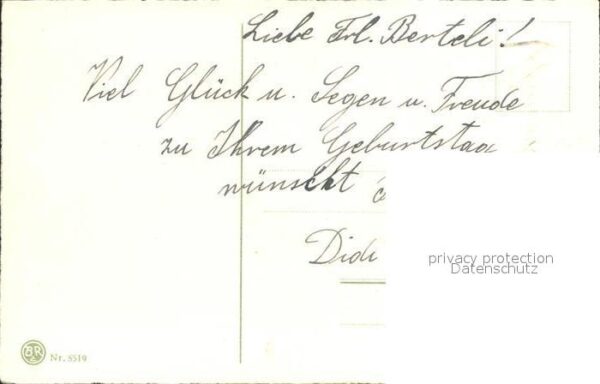 Liebe Frl. Berteli!
Viel Glück u. Segen u. Freude
zu Ihrem Geburtstag
wünscht
Didi
privacy protection
Datenschutz
BR
Nr. 8519